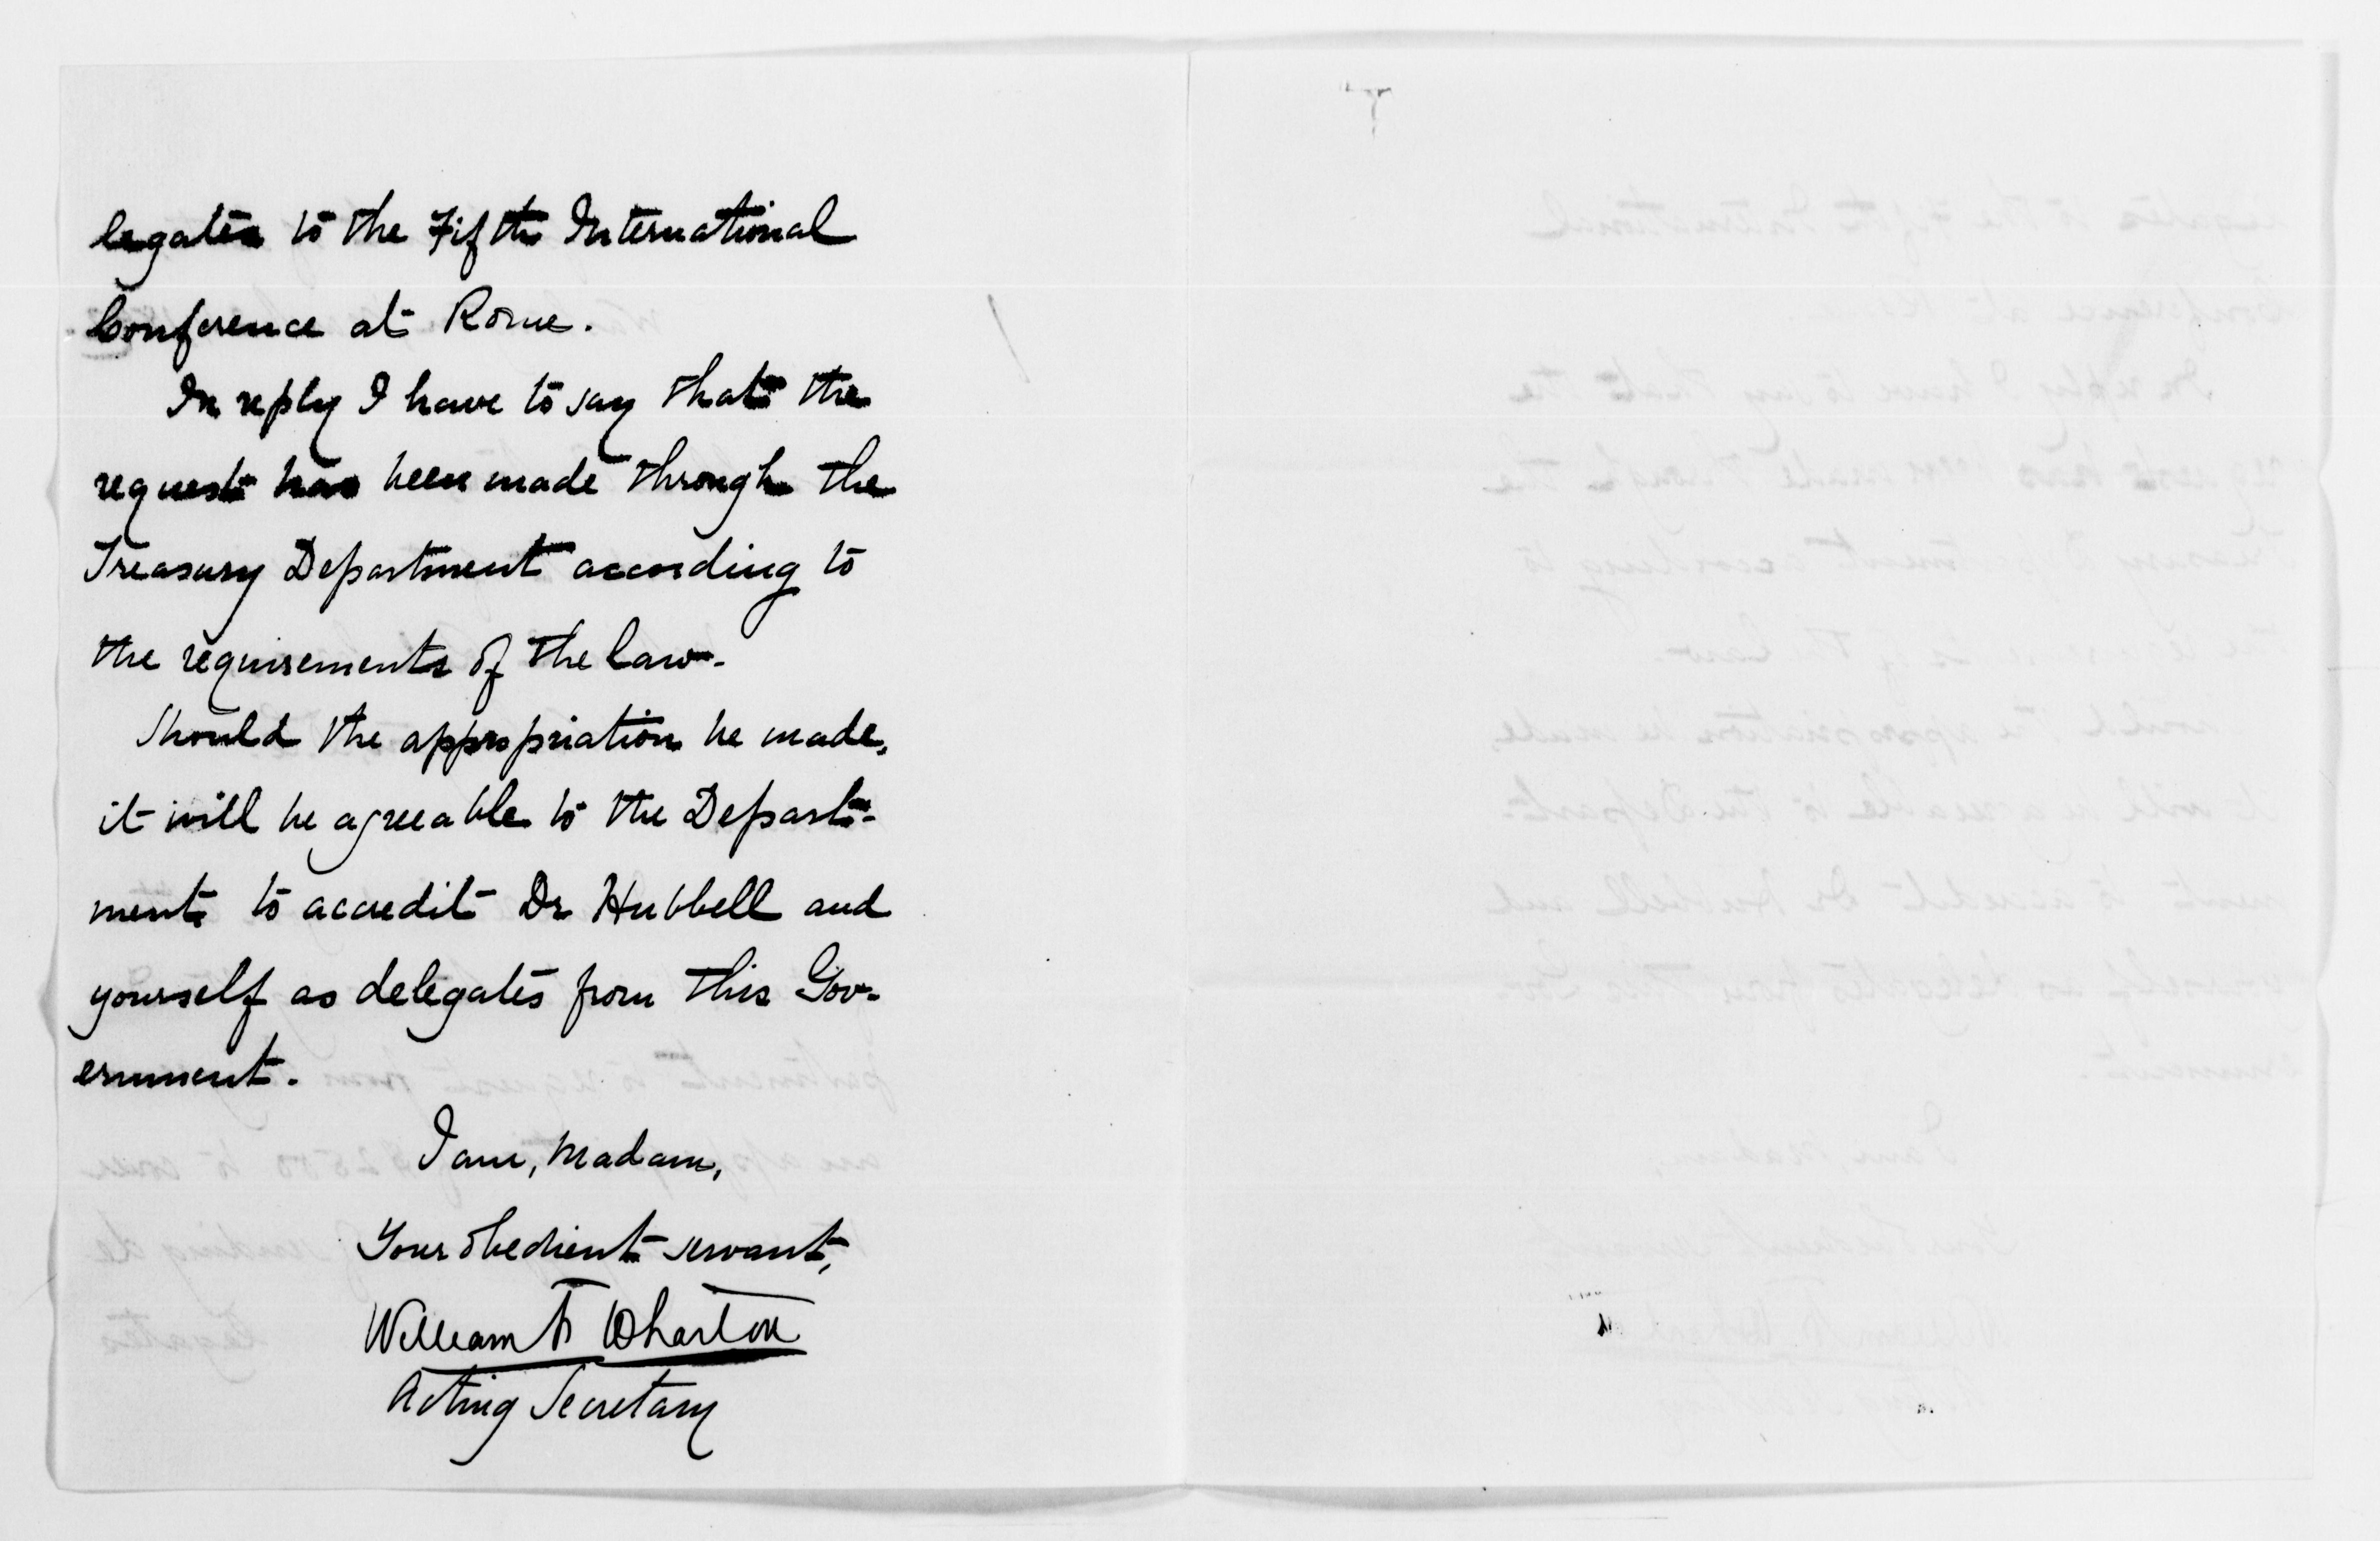 legates to the Fifth International
Conference at Rome.
In reply I have to say that the
request has been made through the
Treasury Department according to
the requirements of the law.
Should the appropriation be made,
it will be agreeable to the Depart-
ment to accredit Dr Hubbell and
yourself as delegates from this Gov-
ernment.
I am, Madam,
Your obedient servant,
William F Wharton
Acting Secretary